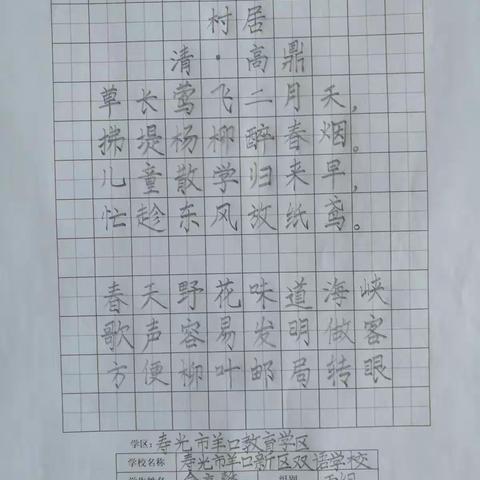 村居
清·高鼎
草长莺飞二月天，
拂堤杨柳醉春烟。
儿童散学归来早，
忙趁东风放纸鸢。
春天野花味道海峡
歌声容易发明做客
方便柳叶邮局转眼
学区：寿光市羊口教育学区
学校名称 寿光市羊口新区双语学校